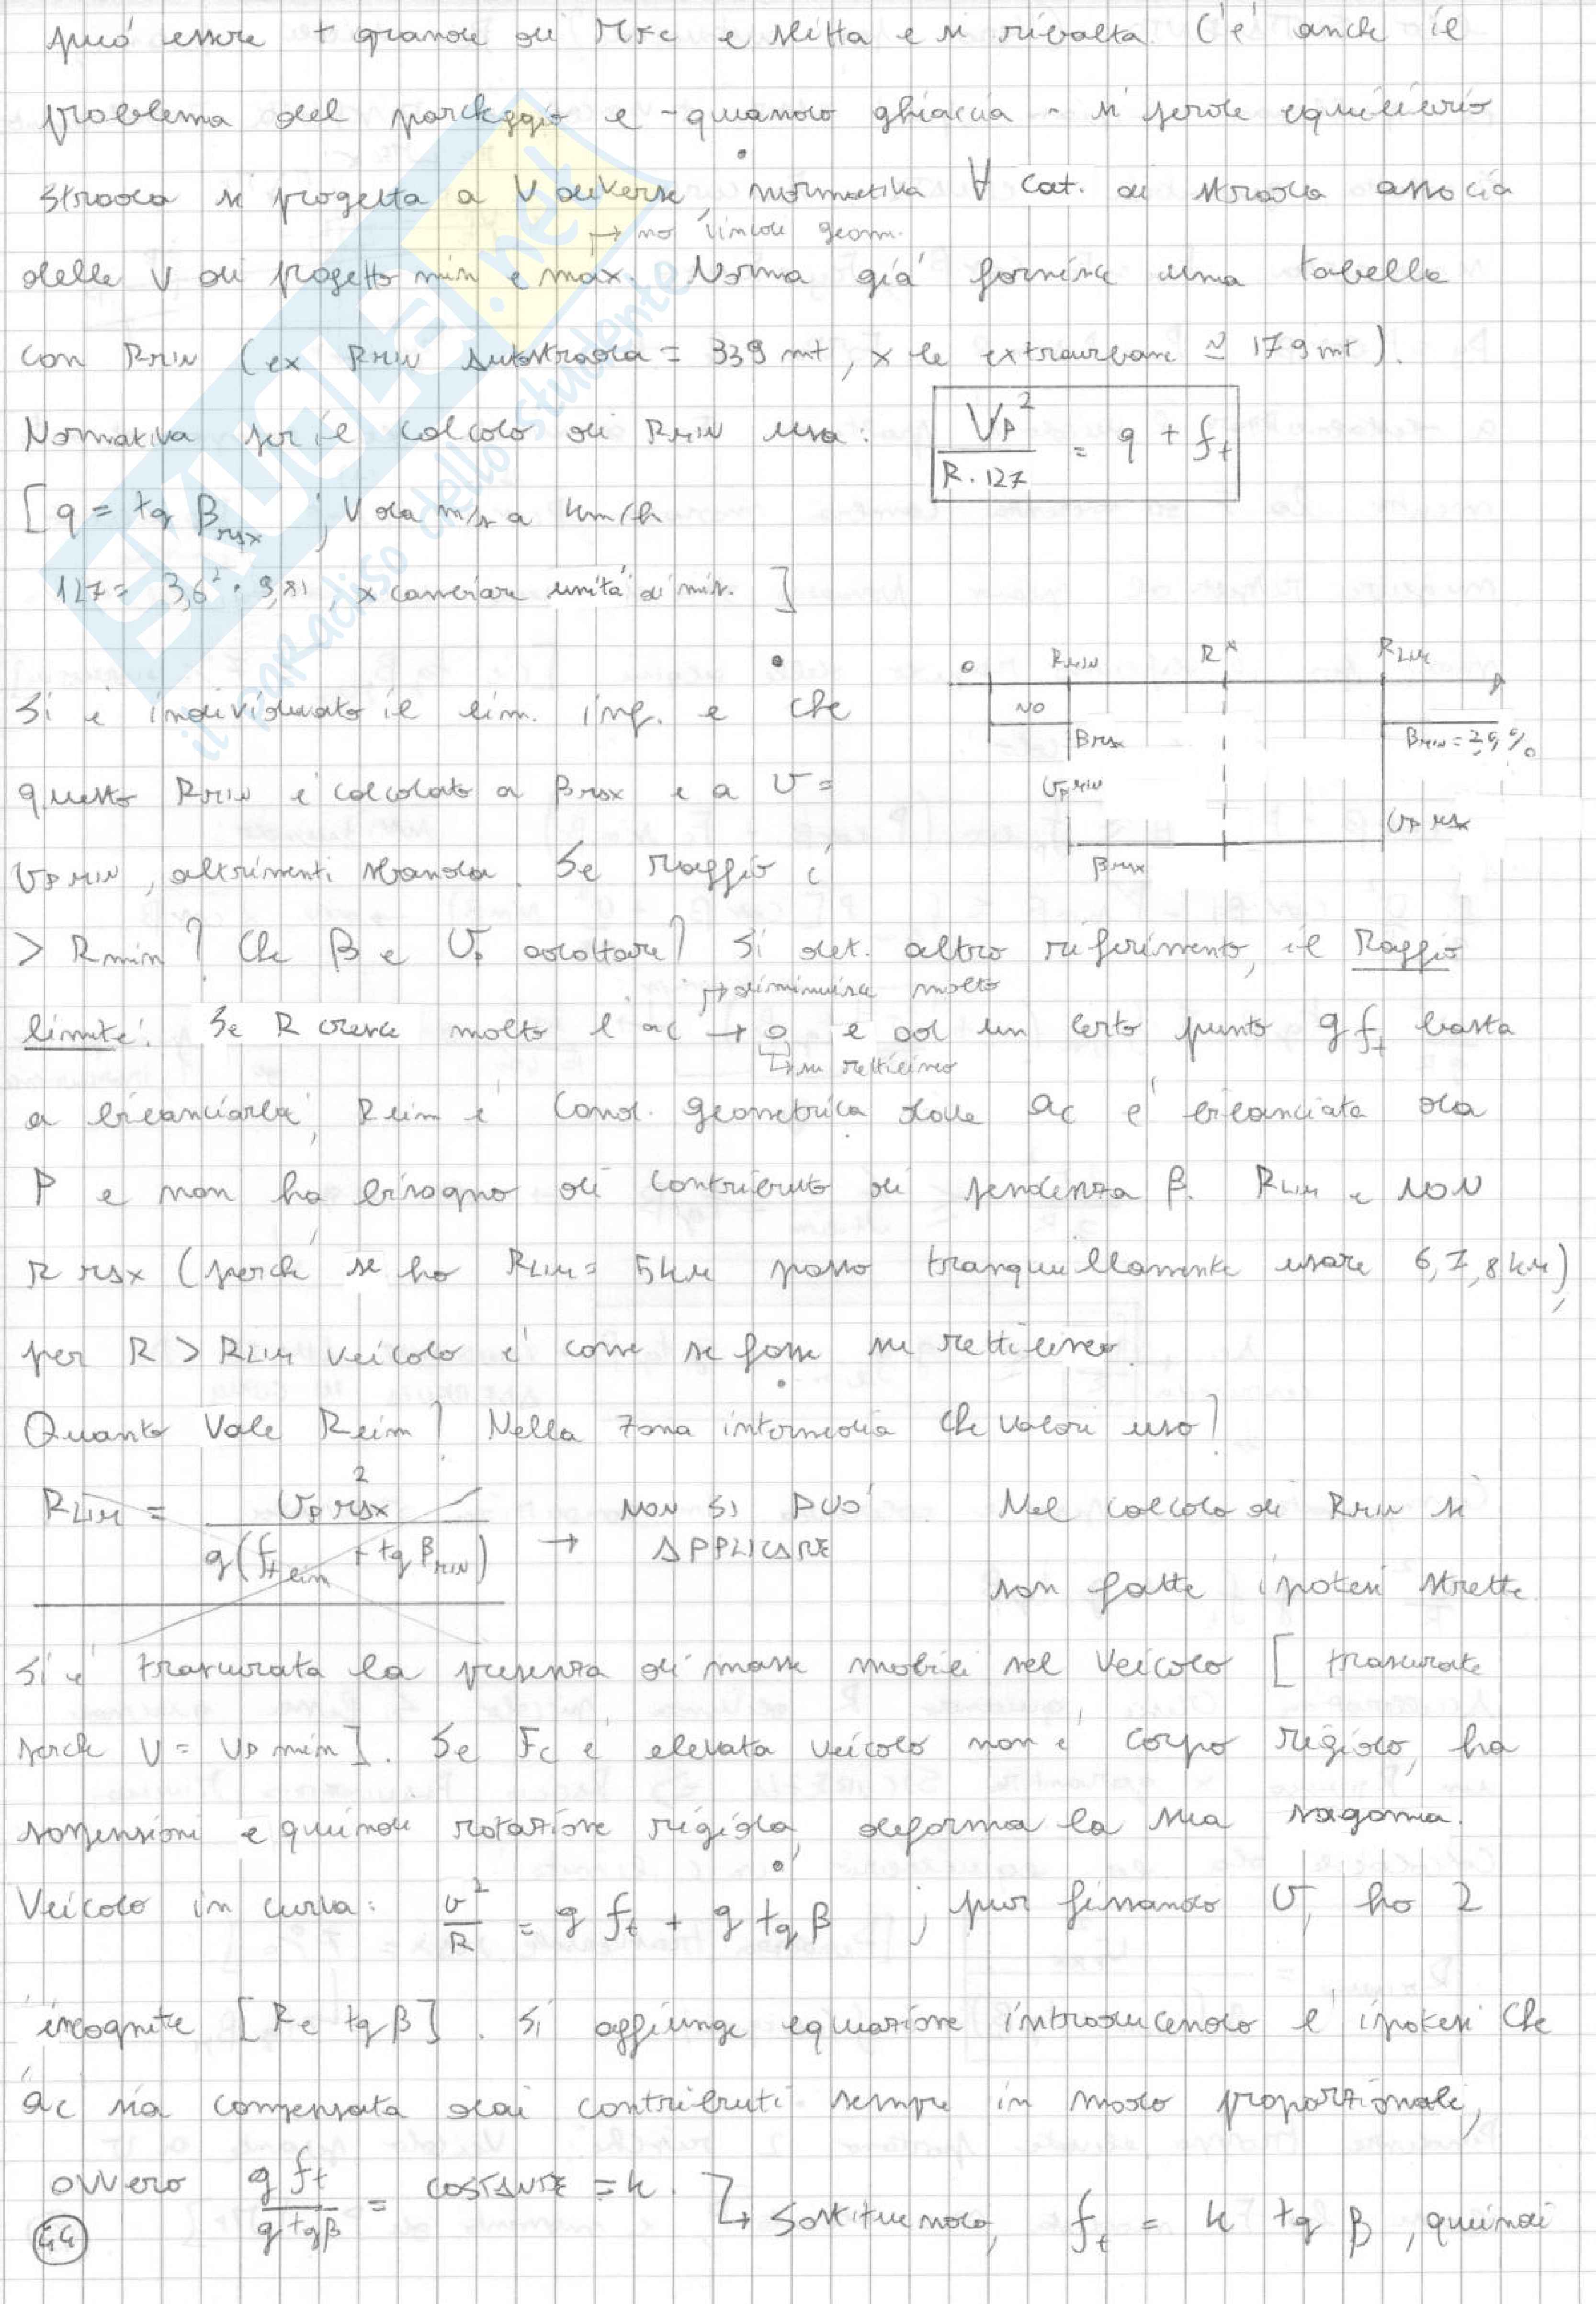 può essere + grande di MFc e slitta e si ribalta. C'è anche il
problema del parcheggio e - quando ghiaccia - si perde equilibrio
Strada si progetta a V diverse, normativa ∀ cat. di strada associa
↳ no vincoli geom.
delle V di progetto min e max. Norma già fornisce una tabella
con RMIN (ex RMIN Autostrada = 339 mt, x le extraurbane ≃ 179 mt).
Normativa per il calcolo di RMIN usa: Vp² / R·127 = q + ft
[q = tg βmax ; V da m/s a km/h
127 = 3,6² · 9,81 x cambiare unità di mis. ]
0 RMIN R* RLIM
NO
βmax βMIN = 2,5 %
VP MIN
VP MAX
βmax
Si è individuato il lim. inf. e che
questo RMIN è calcolato a βmax e a V =
VP MIN, altrimenti sbanda. Se raggio è
> Rmin? Che β e Vp adottare? Si det. altro riferimento, il Raggio
↳ diminuisce molto
limite. Se R cresce molto l'ac → 0 e ad un certo punto g ft basta
↳ su rettilineo
a bilanciarla; Rlim è cond. geometrica dove ac è bilanciata da
P e non ha bisogno di contributo di pendenza β. RLIM e NON
R max (perché se ho RLIM = 5km posso tranquillamente usare 6,7,8 km),
per R > RLIM veicolo è come se fosse su rettilineo.
Quanto vale Rlim? Nella zona intermedia che valori uso?
RLIM = VP max² / g(ft lim + tg βMIN) → NON SI PUO' APPLICARE Nel calcolo di RMIN si
son fatte ipotesi strette.
Si è trascurata la presenza di masse mobili nel veicolo [ trascurate
perché V = VP min ]. Se Fc è elevata veicolo non è corpo rigido, ha
sospensioni e quindi rotazione rigida, deforma la sua sagoma.
Veicolo in curva: v²/R = g ft + g tg β ; pur fissando V, ho 2
incognite [R e tg β]. Si aggiunge equazione introducendo l'ipotesi che
ac sia compensata dai contributi sempre in modo proporzionale,
ovvero g ft / g tg β = COSTANTE = k. ↳ Sostituendo, ft = k tg β, quindi
44
SKUOLA.net
il paradiso dello studente